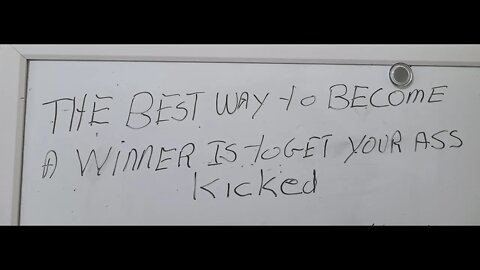 THE BEST WAY to BECOME
A WINNER IS to GET YOUR ASS
kicked